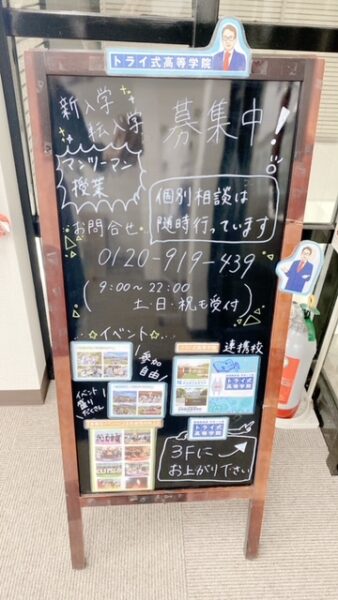 トライ式高等学院
新入学
転入学
募集中!
マンツーマン
授業
個別相談は
随時行っています
お問合せ
0120-919-439
(9:00~22:00
土・日・祝も受付)
☆イベント☆
参加
自由!
連携校
イベント
盛り
だくさん
トライ式
高等学院
トライ式
高等学院
3Fに
お上がり下さい